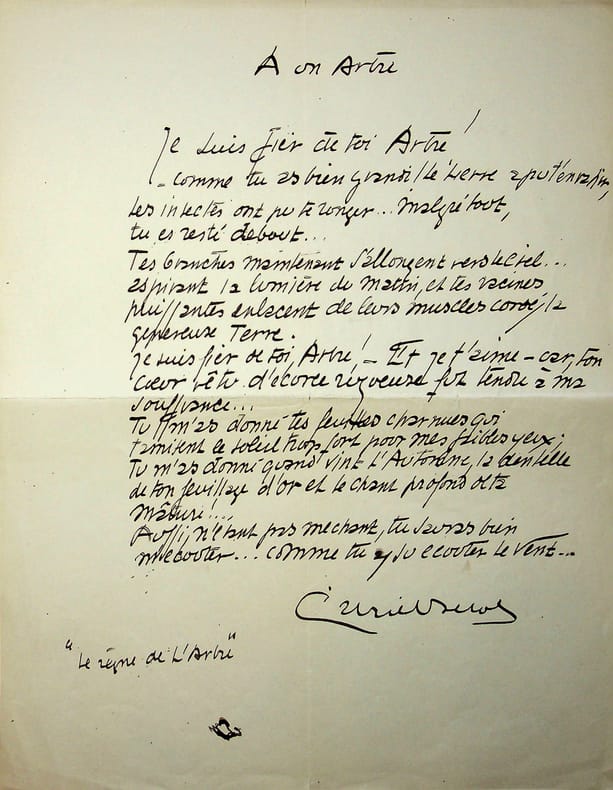 A un Arbre
Je suis fier de toi Arbre !
- comme tu as bien grandi ! le Lierre a pu t'envahir,
Les insectes ont pu te ronger... malgré tout,
tu es resté debout...
Tes branches maintenant s'allongent vers le ciel...
aspirant la lumière du matin, et tes racines
puissantes enlacent de leurs muscles cordés, la
généreuse Terre.
Je suis fier de toi, Arbre ! - Et je t'aime - car, ton
cœur vêtu d'écorce rugueuse fut tendre à ma
souffrance...
Tu m'as donné tes feuilles charnues qui
tamisent le soleil trop fort pour mes faibles yeux ;
Tu m'as donné quand vint l'Automne, la dentelle
de ton feuillage d'Or et le chant profond de ta
mâture !...
Aussi, n'étant pas méchant, tu sauras bien
m'écouter... comme tu as su écouter le vent...
"Le règne de L'Arbre"